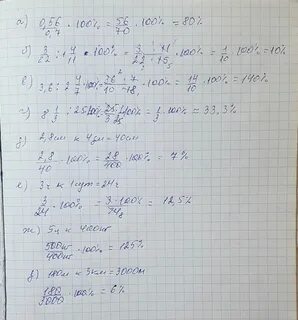 а) 0,56/0,7 · 100% = 56/70 · 100% = 80%
б) 3/22 : 1 4/11 · 100% = 3 · 11/22 · 15 · 100% = 1/10 · 100% = 10%
в) 3,6 : 2 4/7 · 100% = 36 · 7/10 · 18 · 100% = 14/10 · 100% = 140%
г) 8 1/3 : 25 · 100% = 25/3 · 25 · 100% = 1/3 · 100% ≈ 33,3%
д) 2,8см к 4дм = 40см
2,8/40 · 100% = 28/400 · 100% = 7%
е) 3ч к 1сут = 24ч
3/24 · 100% = 3 · 100%/24 8 = 12,5%
ж) 5ц к 400кг
500кг/400кг · 100% = 125%
з) 180м к 3км = 3000м
180/3000 · 100% = 6%